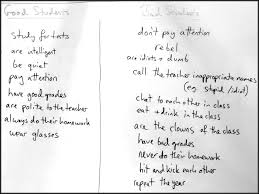 Good Students
study for tests
are intelligent
be quiet
pay attention
have good grades
are polite to the teacher
always do their homework
wear glasses
Bad Students
don't pay attention
rebel
are idiots + dumb
call the teacher inappropriate names
(e.g. stupid / idiot)
chat to each other in class
eat + drink in the class
are the clowns of the class
have bad grades
never do their homework
hit and kick each other
repeat the year